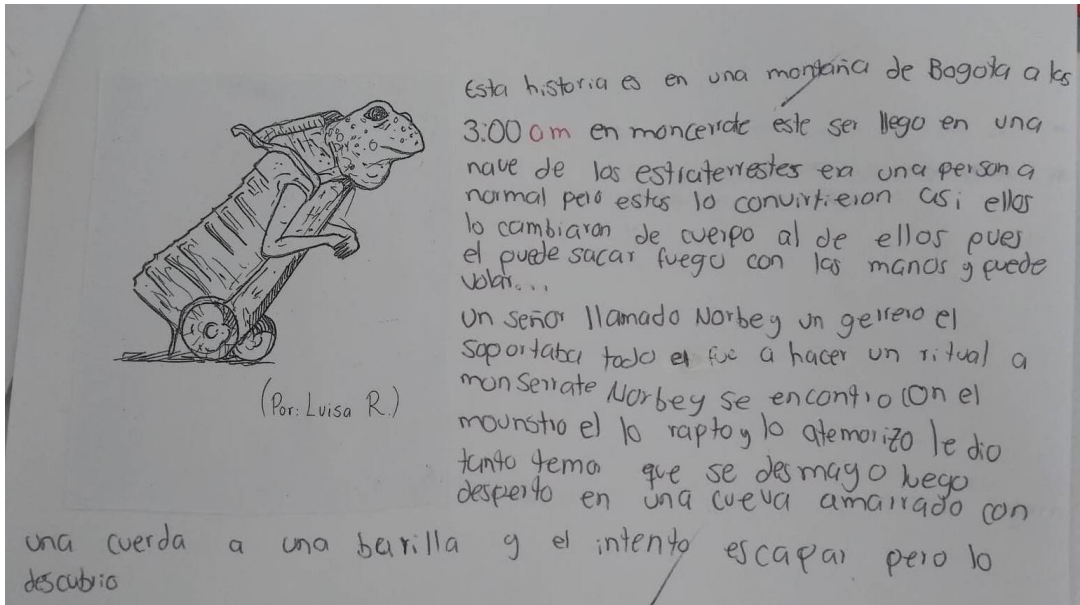 Esta historia es en una montaña de Bogota a las
3:00 am en moncerrate este ser llego en una
nave de los estraterrestes era una persona
normal pero estos lo convirtieron asi ellos
lo cambiaron de cuerpo al de ellos pues
el puede sacar fuego con las manos y puede
volar...
un señor llamado Norbey un gerrero el
soportaba todo el fue a hacer un ritual a
monserrate Norbey se encontro con el
mounstro el lo rapto y lo atemorizo le dio
tanto temor que se desmayo luego
desperto en una cueva amarrado con
una cuerda a una barilla y el intento escapar pero lo
descubrio
(Por: Luisa R.)